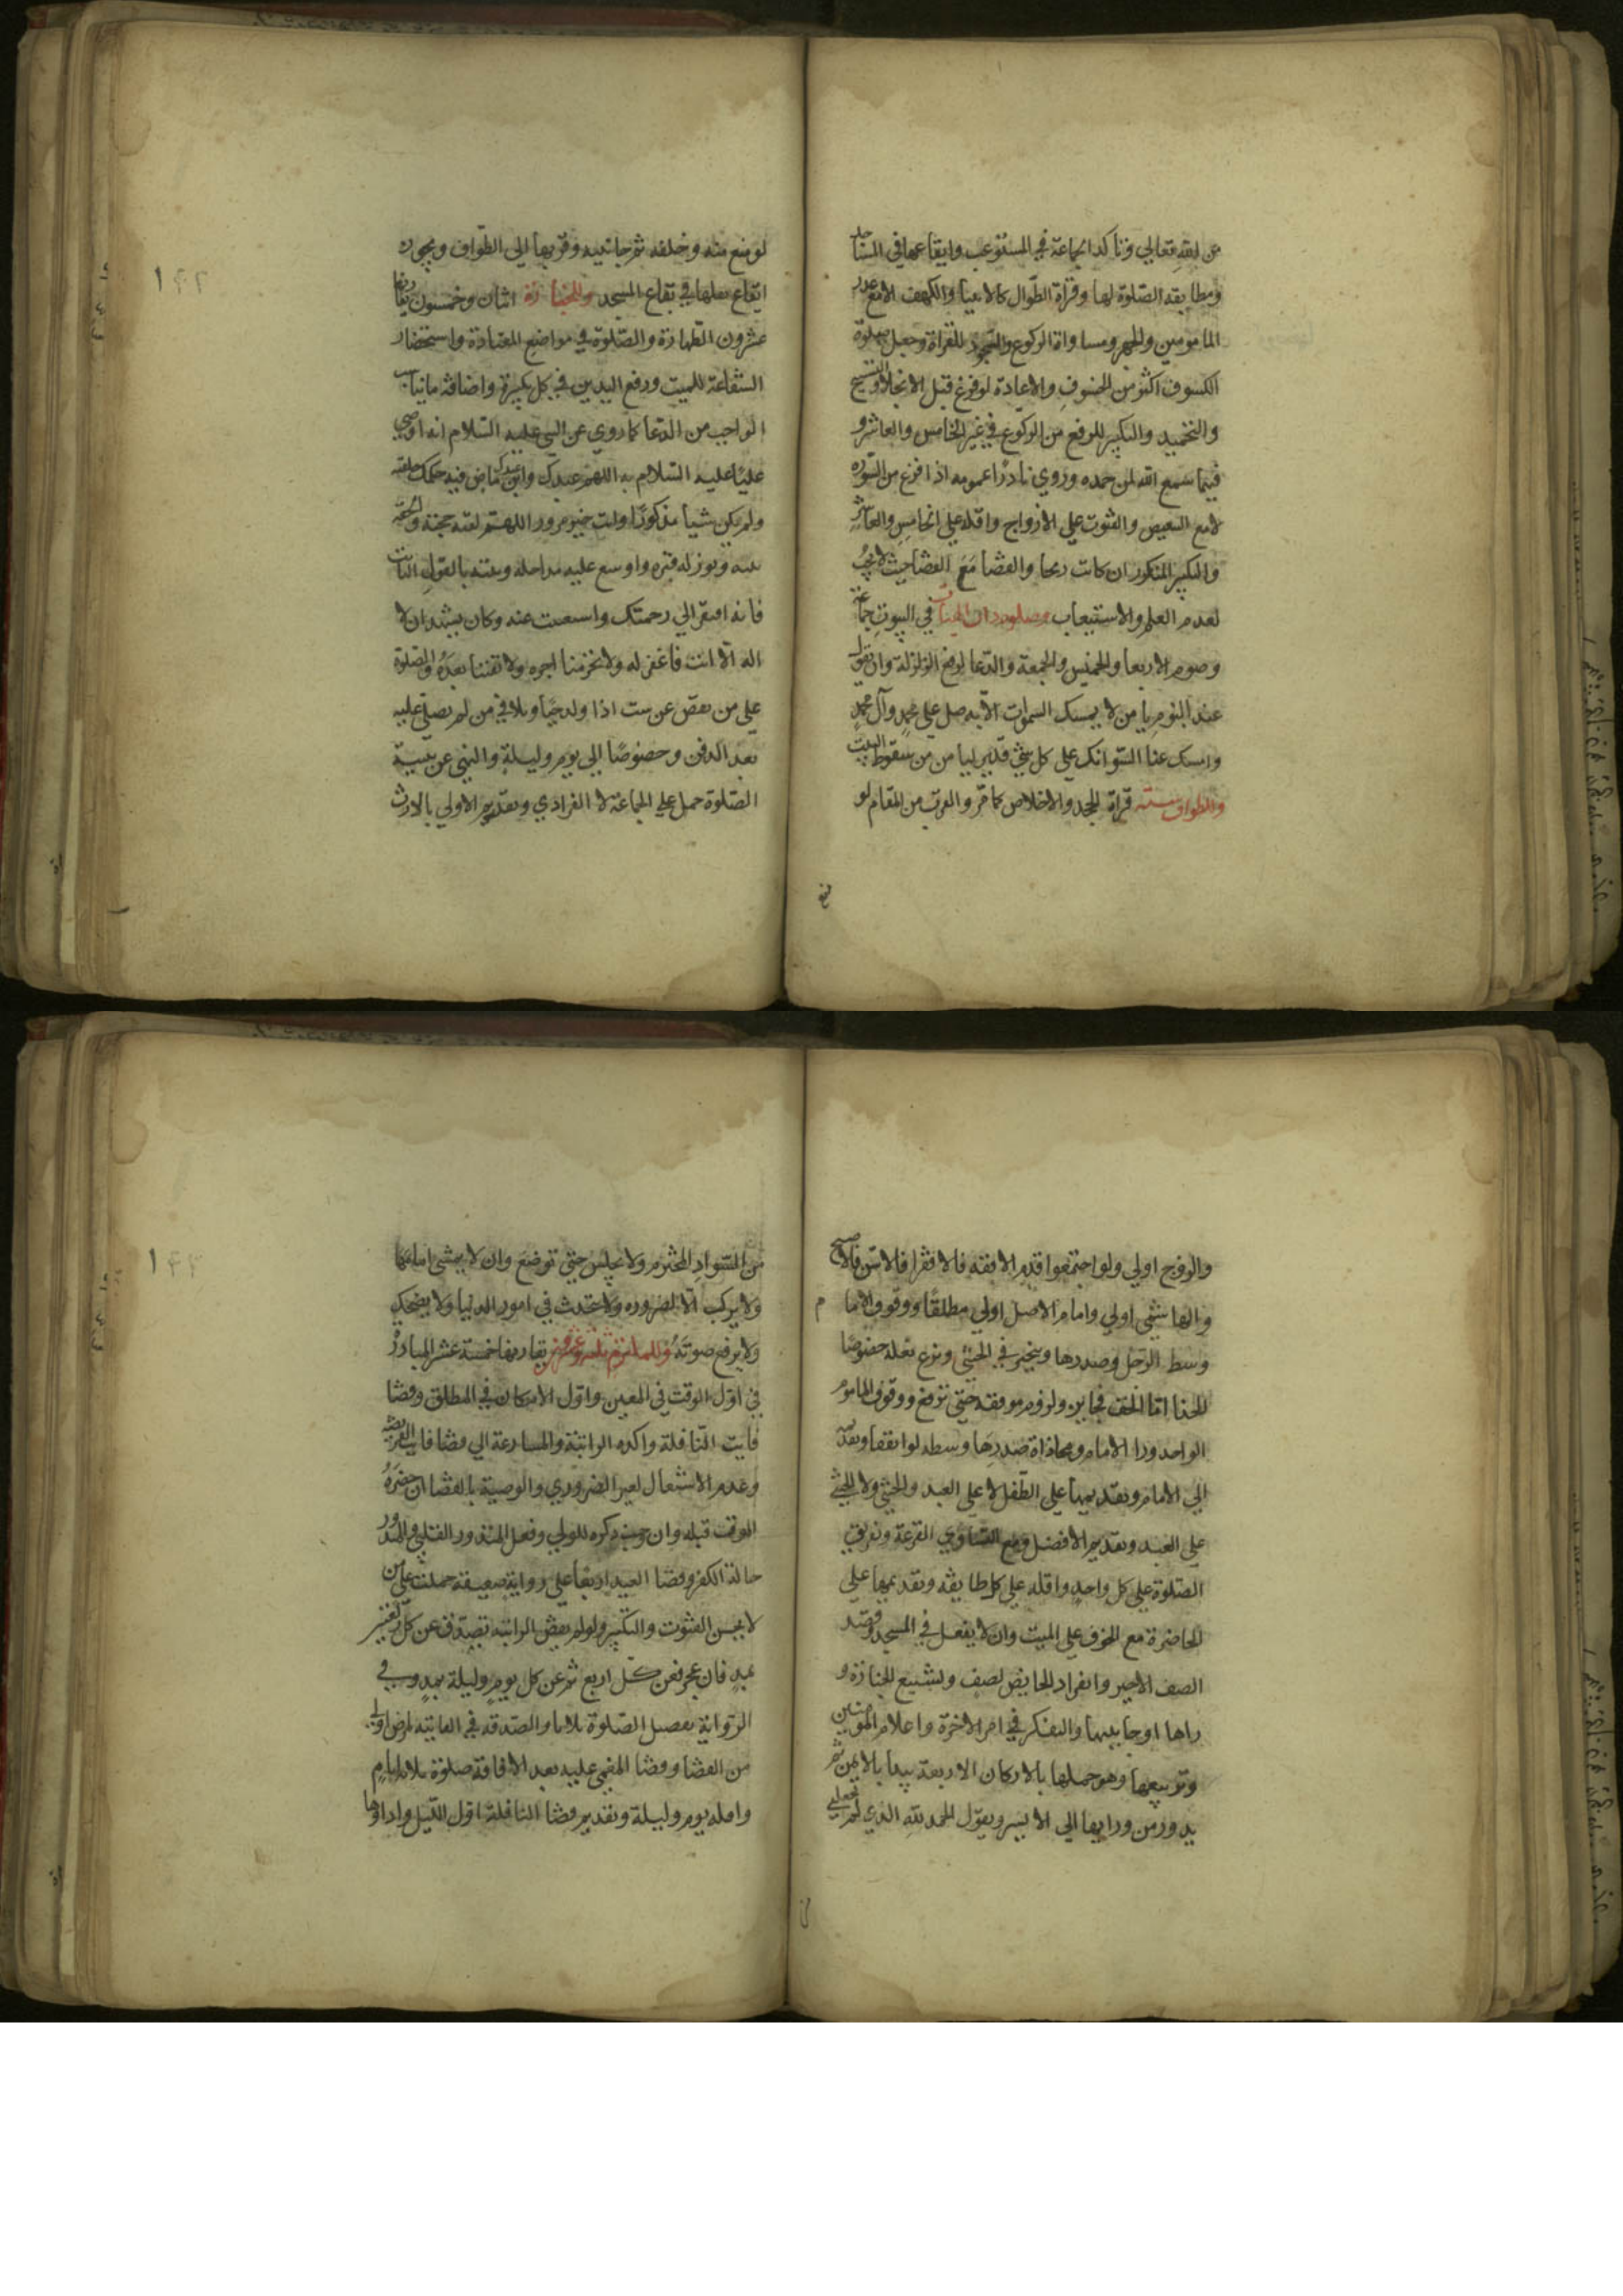 من لقه تعالى وتأكد الجماعة في المستوعب وايقاعها في المساجد
ومطابقة الصلوة لها وقراة الطوال كالانبيا والكهف الا مع عذر
المامومين والجهر ومساواة الركوع والسجود للقراة وجعل صلوة
الكسوف اكثر من الخسوف والاعادة لو فرغ قبل الانجلا والتسبيح
والتحميد والتكبير للرفع من الركوع في غير الخامس والعاشر و
فيهما سمع الله لمن حمده وروي نادرا عمومه اذا فرغ من السورة
لا مع التبعيض والقنوت على الازواج واقله على الخامس والعاشر
والتكبير المتكرر ان كانت ريحا والقضا مع القضا حيث لا يجب
لعدم العلم والاستيعاب في البيوت جماعة
وصوم الاربعا والخميس والجمعة والدعا لرفع الزلزلة وان يقول
عند النوم يا من لا يمسك السموات الاية صل على محمد وآل محمد
وامسك عنا السو انك على كل شي قدير ليا من من سقوط البيت
والطواف ستة قراة الجحد والاخلاص كما مر والقرب من المقام لو
لو منع منه وخلفه ثم جانبيه وقربها الى الطواف ويجوز
ايقاع نفلها في بقاع المسجد وللجنازة اثنان وخمسون يقارنها
عشرون الطهارة والصلوة في مواضع المعتادة واستحضار
الشفاعة للميت ورفع اليدين في كل تكبيرة واضافة ما يناسب
الواجب من الدعا كما روي عن النبي عليه السلام انه اوصى
عليا عليه السلام به اللهم عبدك وابن عبدك ماض فيه حكمك خلقته
ولم يكن شيا مذكورا وانت خير مزور اللهم لقنه حجته والحقه
بنبيه ونور له قبره واوسع عليه مداخله وثبته بالقول الثابت
فانه افتقر الى رحمتك واستغنيت عنه وكان يشهد ان لا
اله الا انت فاغفر له ولا تحرمنا اجره ولا تفتنا بعده والصلوة
على من نقص عن ست اذا ولد حيا وتلافي من لم يصل عليه
بعد الدفن وخصوصا الى يوم وليلة والنهي عن تثنية
الصلوة حمل على الجماعة لا الفرادى وتقديم الاولى بالارث
والزوج اولى ولو اجتمعوا قدم الافقه فالاقرا فالاسن فالاصبح
والهاشمي اولى وامام الاصل اولى مطلقا ووقوف الاما م
وسط الرجل وصدرها ويتخير في الخنثى ونزع نعله خصوصا
الحذا اما الخف فجايز ولزوم موقفه حتى ترفع ووقوف الماموم
الواحد ورا الامام ومحاذاة صدرها وسطه لو اتفقا وتقديمه
الى الامام وتقديمها على الطفل لا على العبد والخنثى ولا الخنثى
على العبد وتقديم الافضل ومع التساوي القرعة وتفريق
الصلوة على كل واحد واقله على كل طايفة وتقديمها على
الحاضرة مع الخوف على الميت وان لا يفعل في المسجد وقصد
الصف الاخير وانفراد الحايض بصف وتشييع الجنازة و
راها او جانبيها والتفكر في امر الاخرة واعلام المومنين
وتربيعها وهو حملها بالاركان الاربعة يبدا بالايمن ثم
يدور من ورايها الى الايسر ويقول الحمد لله الذي لم يجعلني
من السواد المخترم ولا يجلس حتى توضع وان لا يمشي امامها
ولا يركب الا لضرورة ولا يتحدث في امور الدنيا ولا يضحك
ولا يرفع صوته وللملتزم يقارنها خمسة عشر المبادرة
في اول الوقت في المعين واول الامكان في المطلق وقضا
فايت النافلة واكده الراتبة والمسارعة الى قضا فايت الفريضة
وعدم الاشتغال لغير الضروري والوصية بالقضا ان حضره
الموت قبله وان وجب ذكره للولي وفعل المنذور القلبي والمنذور
حالة الكفر وقضا العيد اربعا على رواية ضعيفة حملت على من
لا يحسن القنوت والتكبير ولو لم يقض الراتبة تصدق عن كل ركعتين
بمد فان عجز فعن كل اربع ثم عن كل يوم وليلة بمد وفي
الرواية تفصيل الصلوة ثلاثا والصدقة في الفايتة لمرض اولى
من القضا وقضا المغمى عليه بعد الافاقة صلوة ثلاثة ايام
واقله يوم وليلة وتقديم قضا النافلة اول الليل واداوها